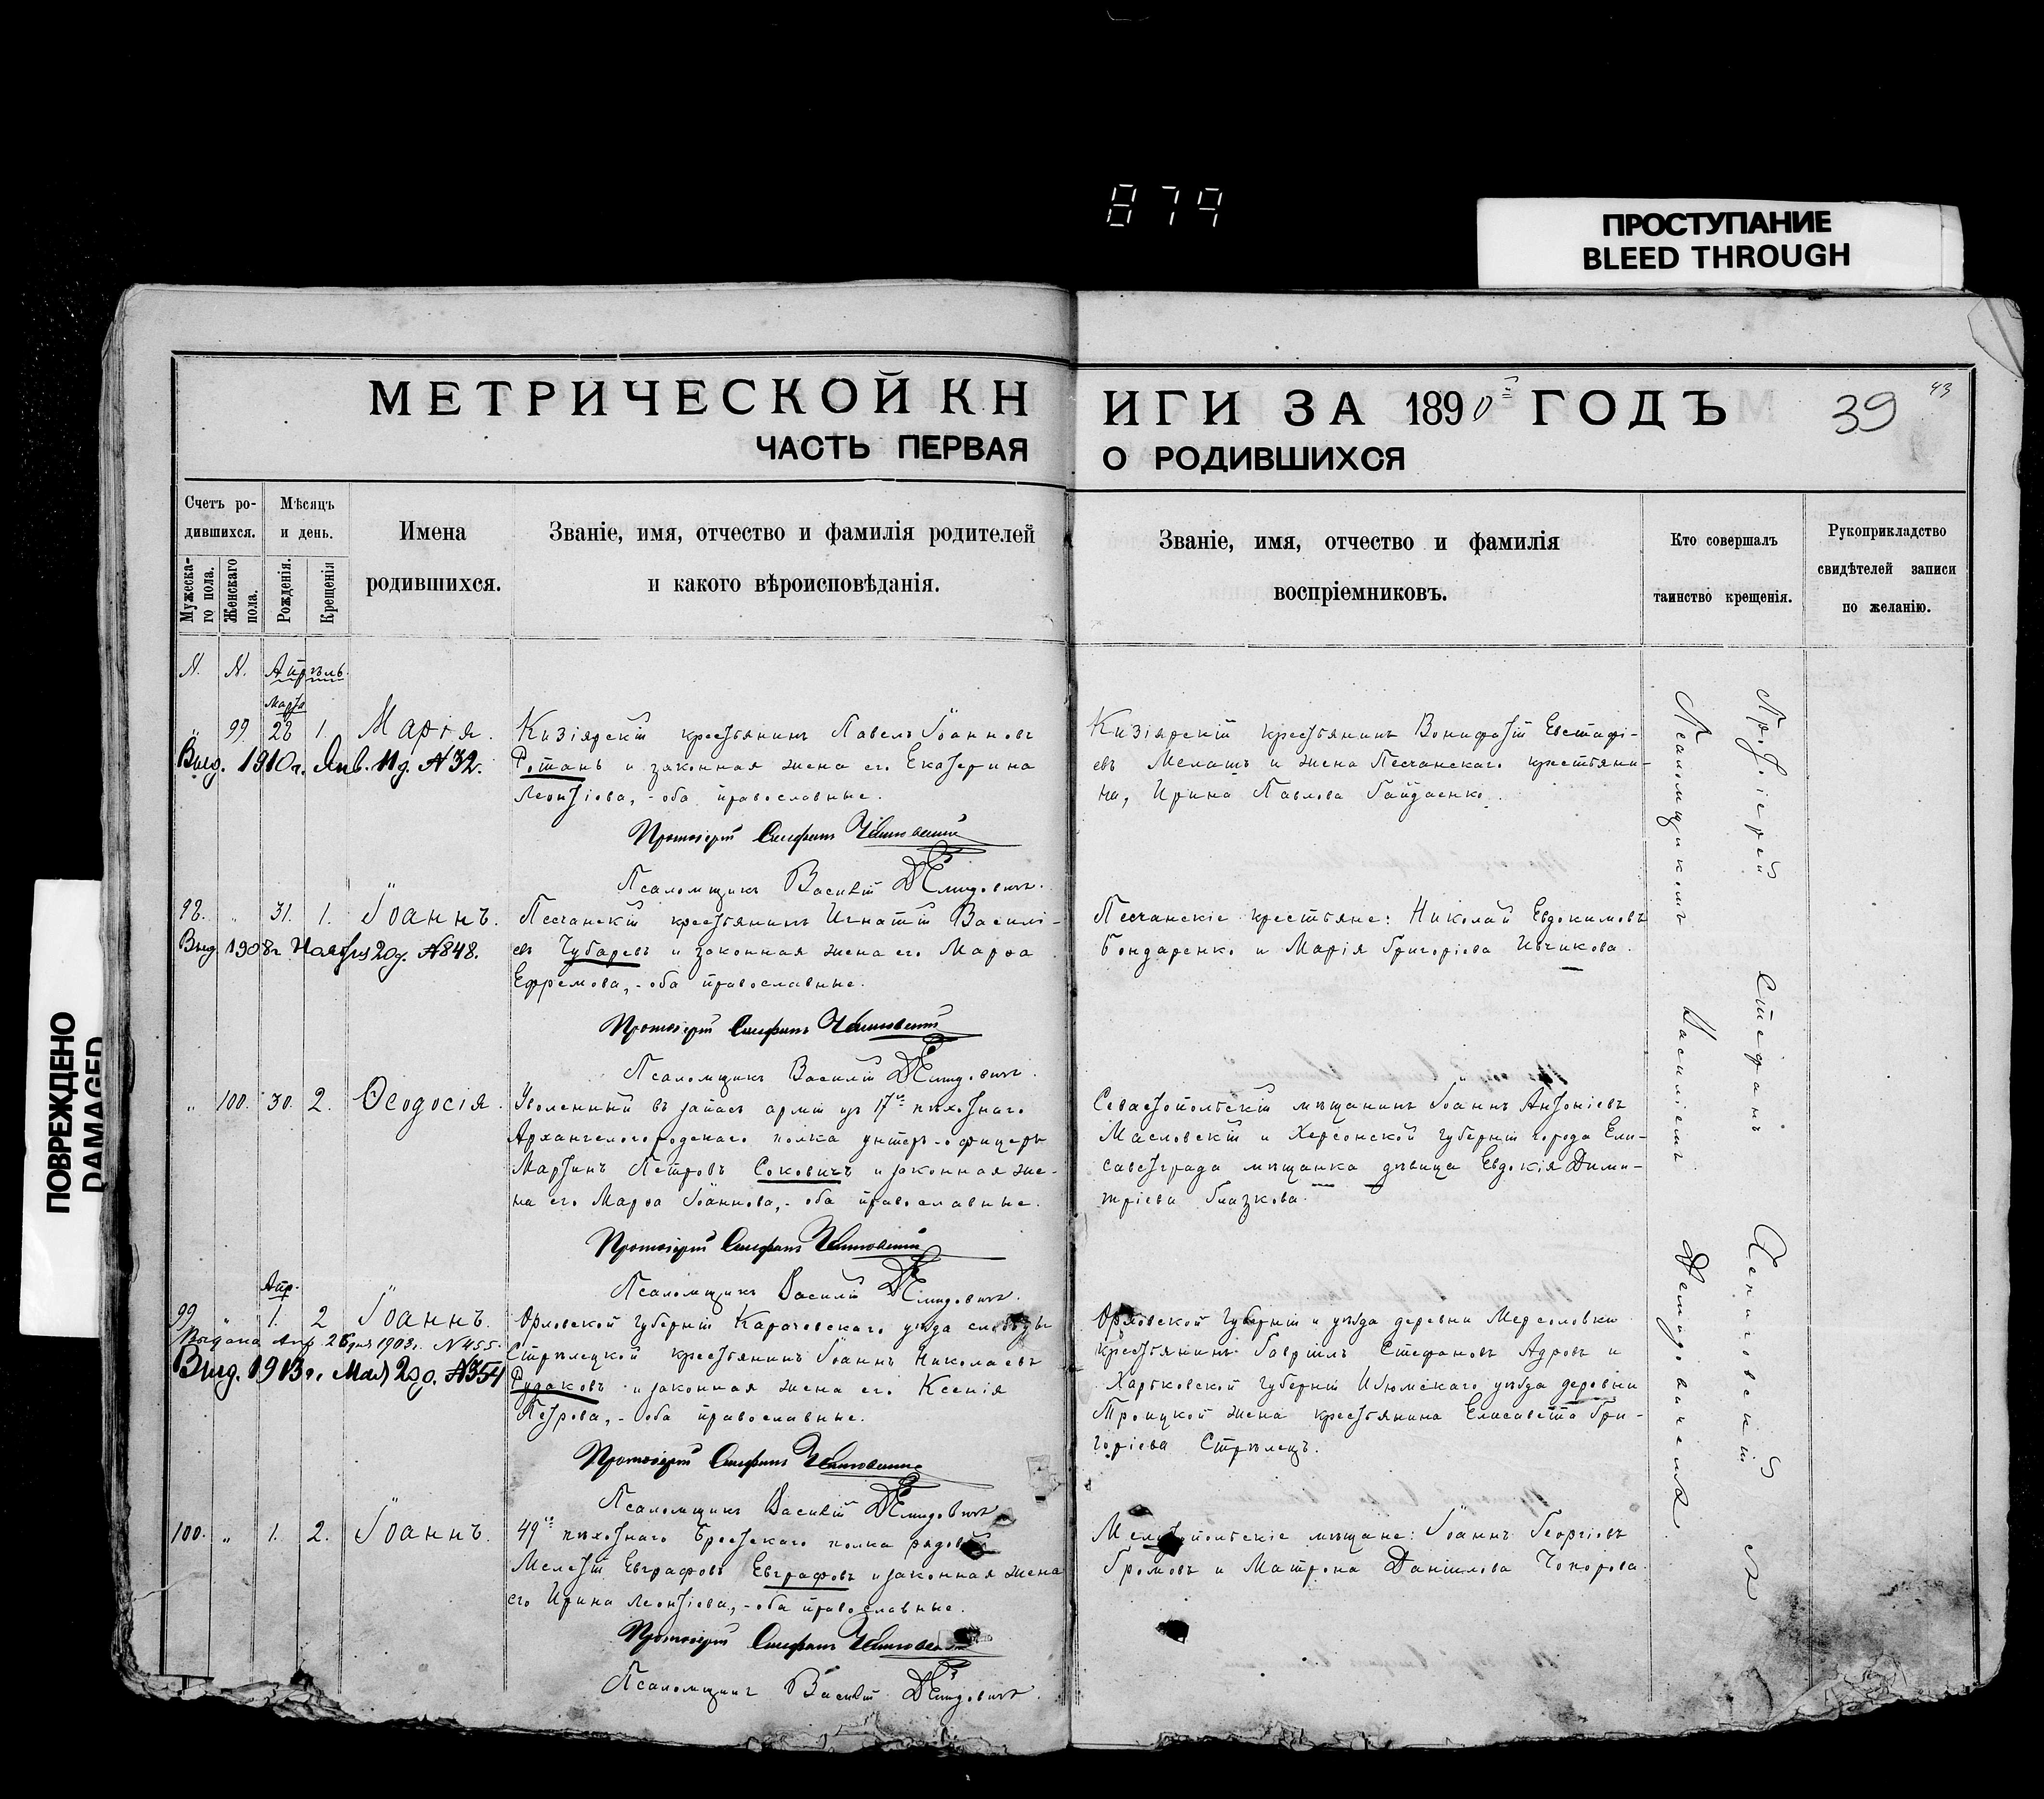 879
ПРОСТУПАНИЕ
BLEED THROUGH
ПОВРЕЖДЕНО
DAMAGED
МЕТРИЧЕСКОЙ КН
ЧАСТЬ ПЕРВАЯ
ИГИ ЗА 1890й ГОДЪ
О РОДИВШИХСЯ
39
43
Счетъ ро-
дившихся.
Мужеска-
го пола.
Женскаго
пола.
Мѣсяцъ
и день.
Рожденія.
Крещенія
Имена
родившихся.
Званіе, имя, отчество и фамилія родителей
и какого вѣроисповѣданія.
Званіе, имя, отчество и фамилія
воспріемниковъ.
Кто совершалъ
таинство крещенія.
Рукоприкладство
свидѣтелей записи
по желанію.
N. N. Апрѣль
Марта
" 99 28 1. Марія.
Выд. 1910 г. Янв. 11 д. №32.
Кизіярскій крестьянинъ Павелъ Іоанновъ
Ротань и законная жена его Екатерина
Леонтіева, - оба православные.
Протоіерей Стефанъ
Псаломщикъ Василій Демидовичъ.
Кизіярскій крестьянинъ Вонифатій Евстафі-
евъ Мелашъ и жена Песчанскаго крестьяни-
на, Ирина Павлова Гайдаенко.
98. " 31. 1. Іоаннъ.
Выд. 1908 г. Ноября 20 д. №848.
Песчанскій крестьянинъ Игнатій Василі-
евъ Чубаревъ и законная жена его Марѳа
Ефремова, - оба православные.
Протоіерей Стефанъ
Псаломщикъ Василій Демидовичъ.
Песчанскіе крестьяне: Николай Евдокимовъ
Бондаренко и Марія Григоріева Ивчикова.
" 100. 30. 2. Ѳеодосія.
Уволенный въ запасъ арміи изъ 17го пѣхотнаго
Архангелогородскаго полка унтеръ-офицеръ
Мартинъ Петровъ Соковичъ и законная же-
на его Марѳа Іоаннова, - оба православные.
Протоіерей Стефанъ
Псаломщикъ Василій Демидовичъ.
Севастопольскій мѣщанинъ Іоаннъ Антоніевъ
Масловскій и Херсонской губерніи города Ели-
саветграда мѣщанка дѣвица Евдокія Дими-
тріева Глазкова.
Апр.
99 " 1. 2 Іоаннъ.
Выдана Апр. 26 дня 1903 г. №455.
Выд. 1913 г. Мая 29 д. №354
Орловской губерніи Карачевскаго уѣзда слободы
Стрѣлецкой крестьянинъ Іоаннъ Николаевъ
Рудаковъ и законная жена его Ксенія
Петрова, - оба православные.
Протоіерей Стефанъ
Псаломщикъ Василій Демидовичъ
Орловской губерніи и уѣзда деревни
крестьянинъ Гавріилъ Стефановъ Адровъ и
Харьковской губерніи Изюмскаго уѣзда деревни
Троицкой жена крестьянина Елисавета Гри-
горіева Стрѣлецъ.
100. " 1. 2. Іоаннъ.
49го пѣхотнаго Брестскаго полка рядовой
Мелетій Евграфовъ Евграфовъ и законная жена
его Ирина Леонтіева, - оба православные.
Протоіерей Стефанъ
Псаломщикъ Василій Демидовичъ.
Мелитопольскіе мѣщане: Іоаннъ Георгіевъ
Громовъ и Матрона Даніилова Чопорова.
Протоіерей Стефанъ
Псаломщикомъ Василіемъ Демидовичемъ